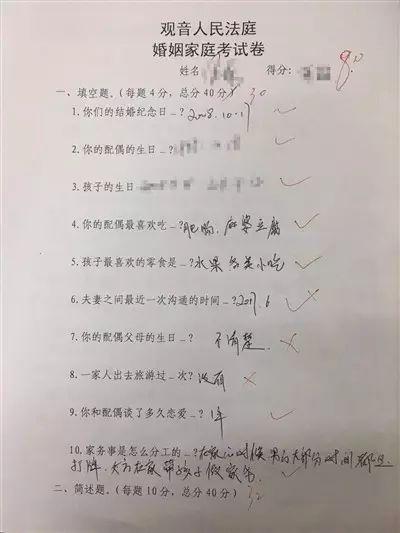 观音人民法庭
婚姻家庭考试卷
姓名 得分: 80
一、填空题。（每题4分，总分40分） 30
1.你们的结婚纪念日_?2008.10.17
2.你的配偶的生日_?
3.孩子的生日
4.你的配偶最喜欢吃_?肥肠、麻婆豆腐
5.孩子最喜欢的零食是_?水果 各类小吃
6.夫妻之间最近一次沟通的时间_?2017.6
7.你的配偶父母的生日_? 不清楚
8.一家人出去旅游过_次? 没有
9.你和配偶谈了多久恋爱_? 1年
10.家务事是怎么分工的_?在家的时候 男的大部分时间都是
打牌、女方在家带孩子做家务
二、简述题。（每题10分，总分40分） 32